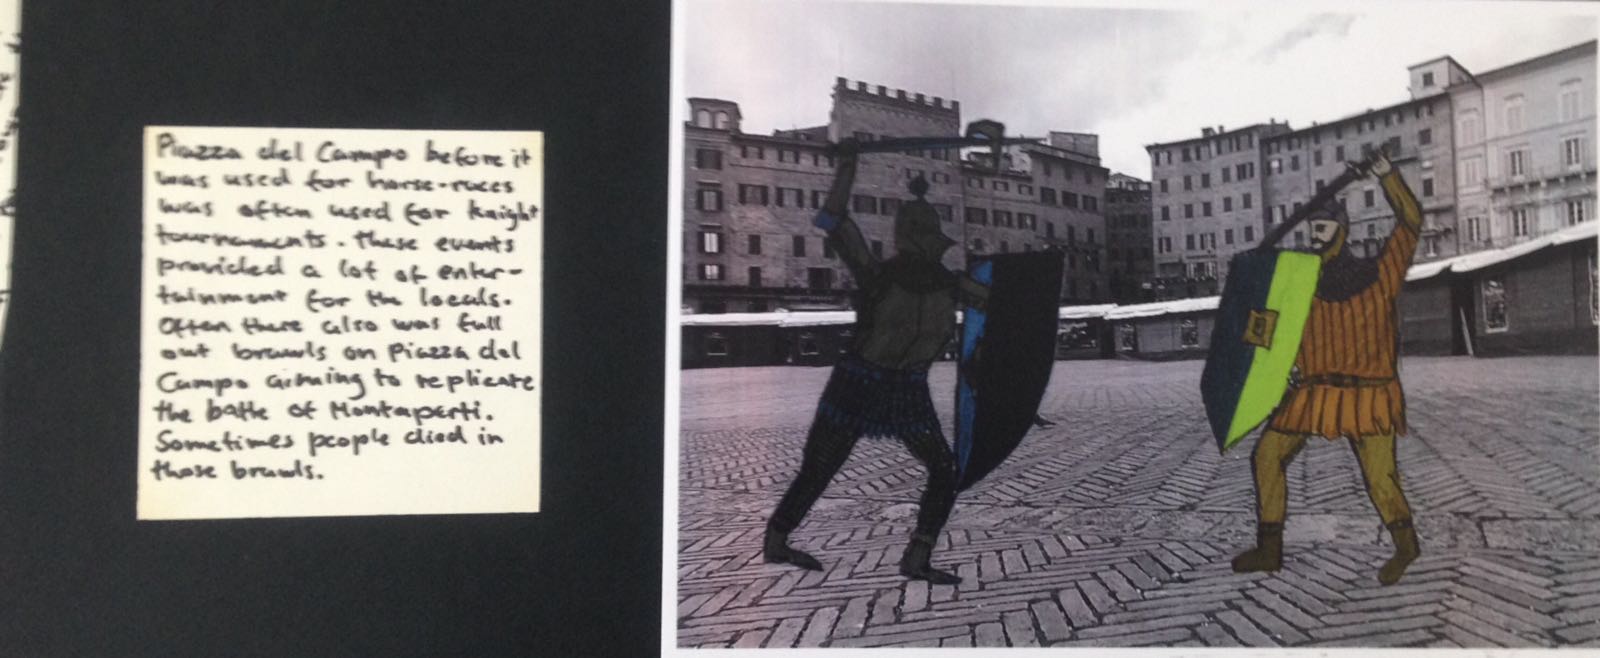 Piazza del Campo before it
was used for horse-races
was often used for knight
tournaments. These events
provided a lot of enter-
tainment for the locals.
Often there also was full
out brawls on Piazza del
Campo aiming to replicate
the battle of Montaperti.
Sometimes people died in
those brawls.